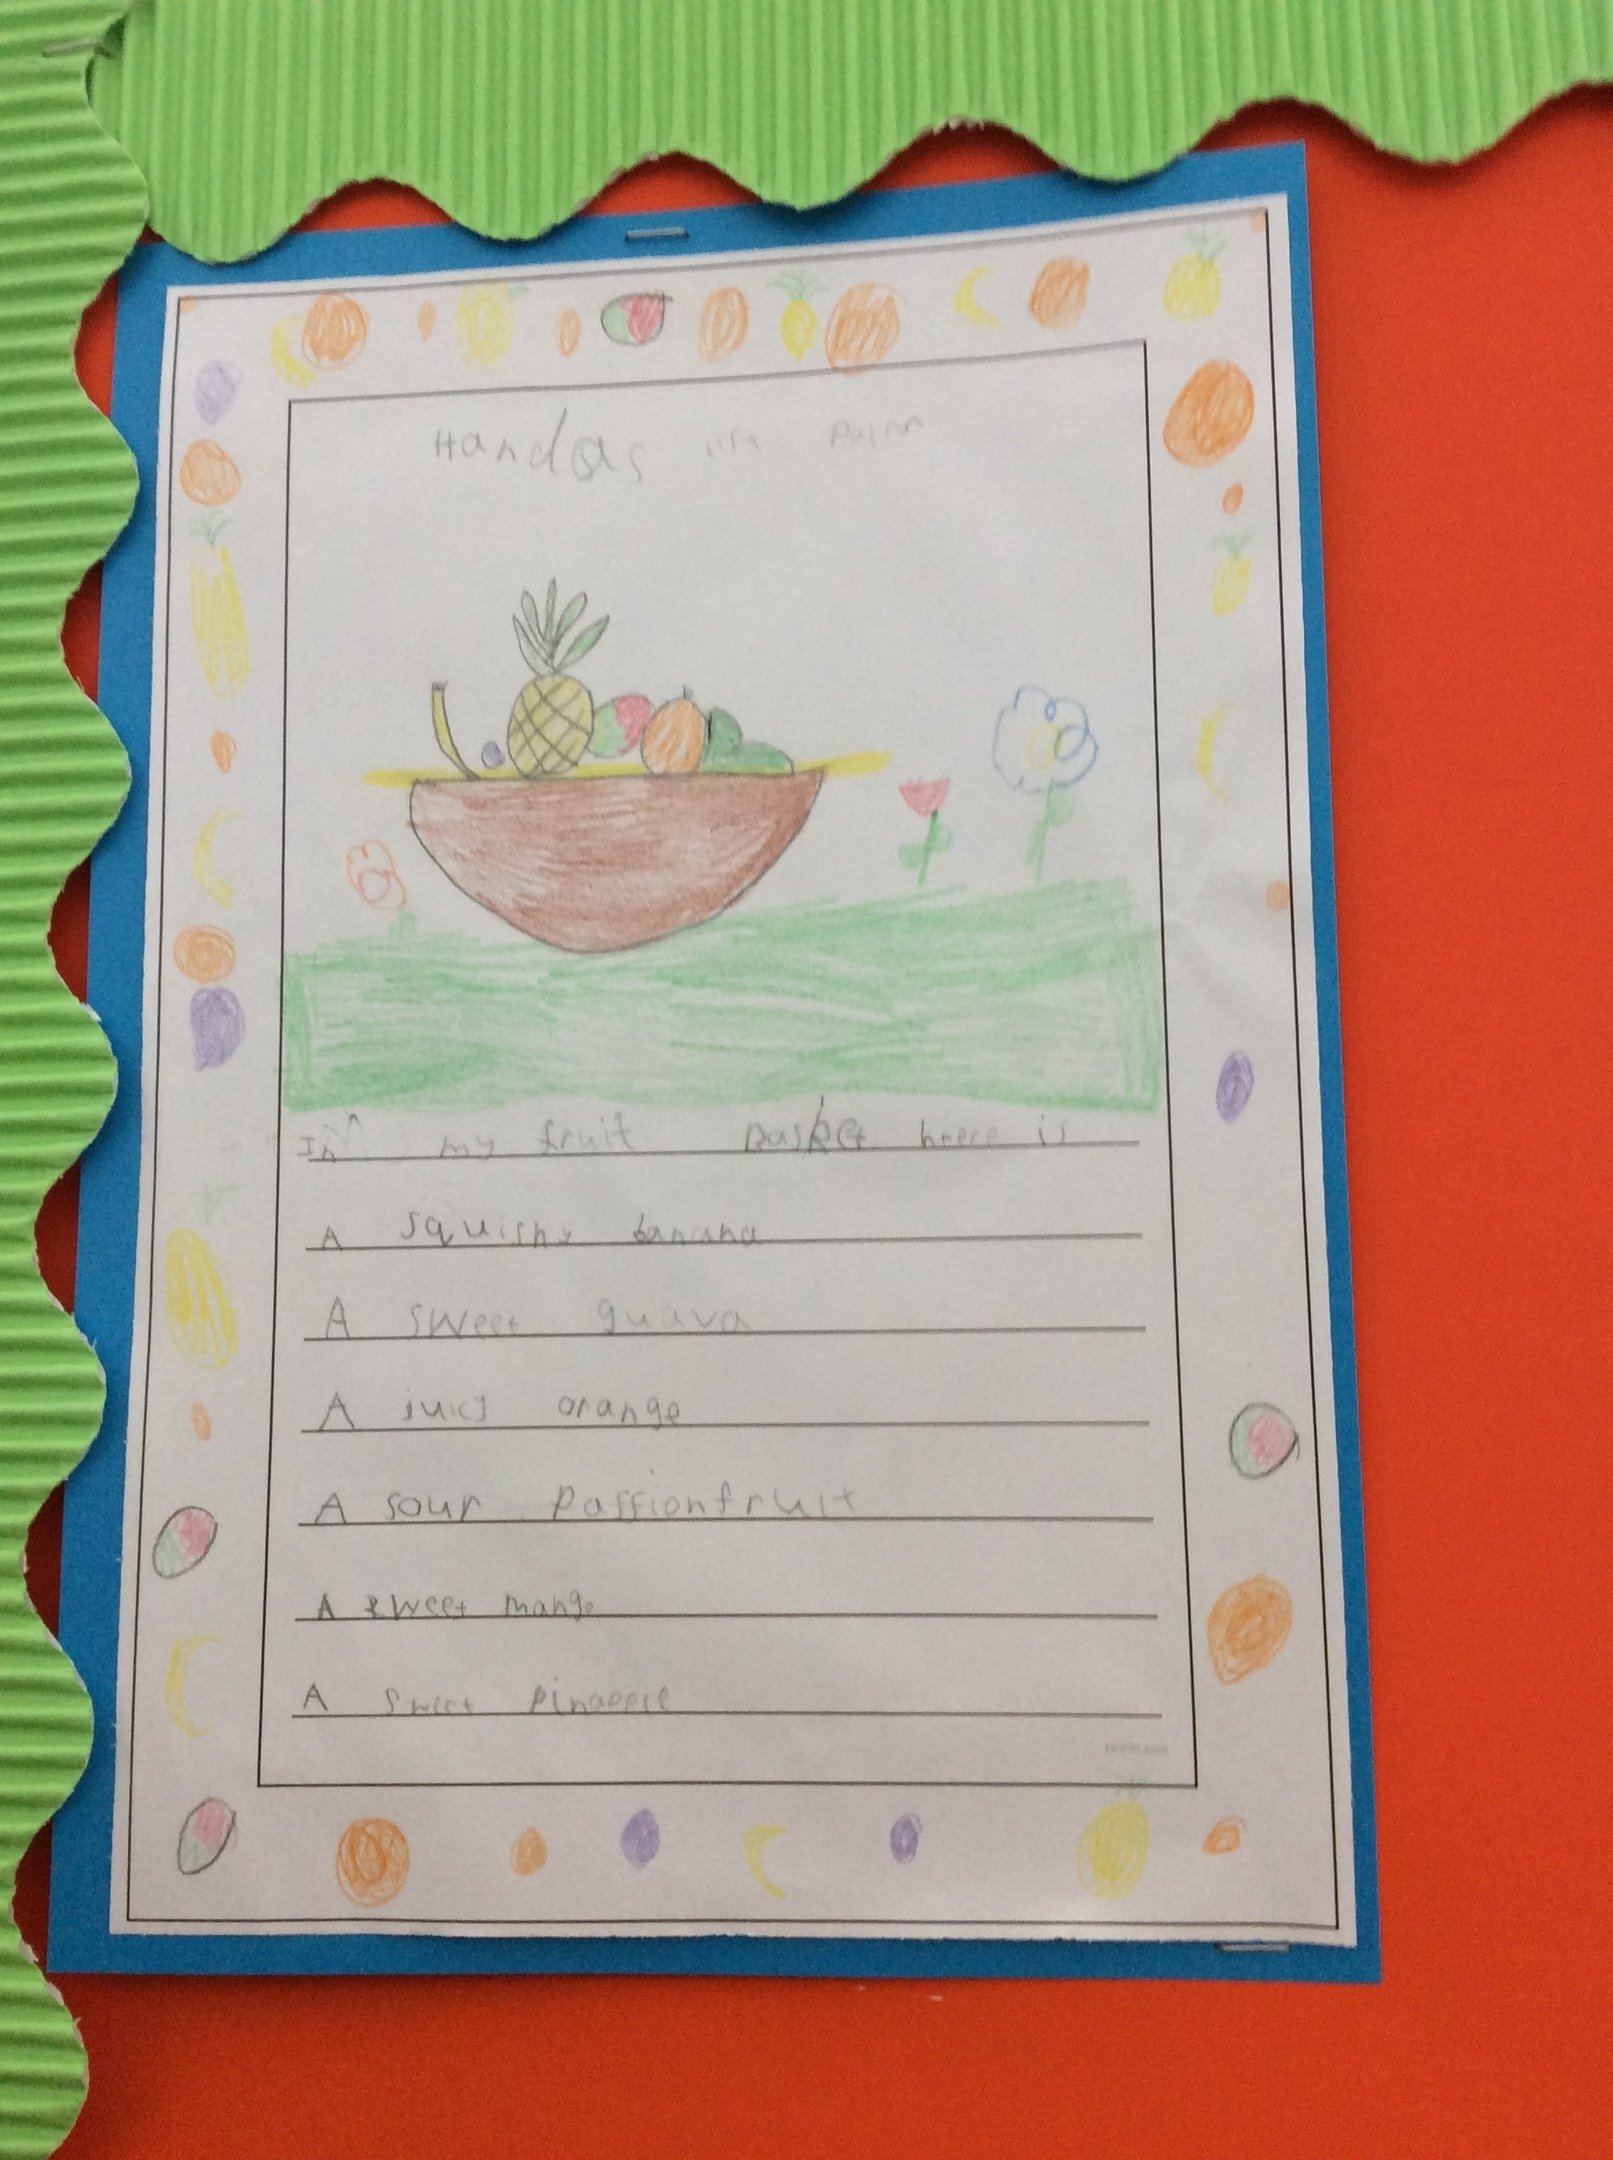 Handas list Poem
In my fruit Basket heere is
A squishy banana
A sweet guava
A juicy orange
A sour Passionfruit
A sweet mango
A sweet Pinapple